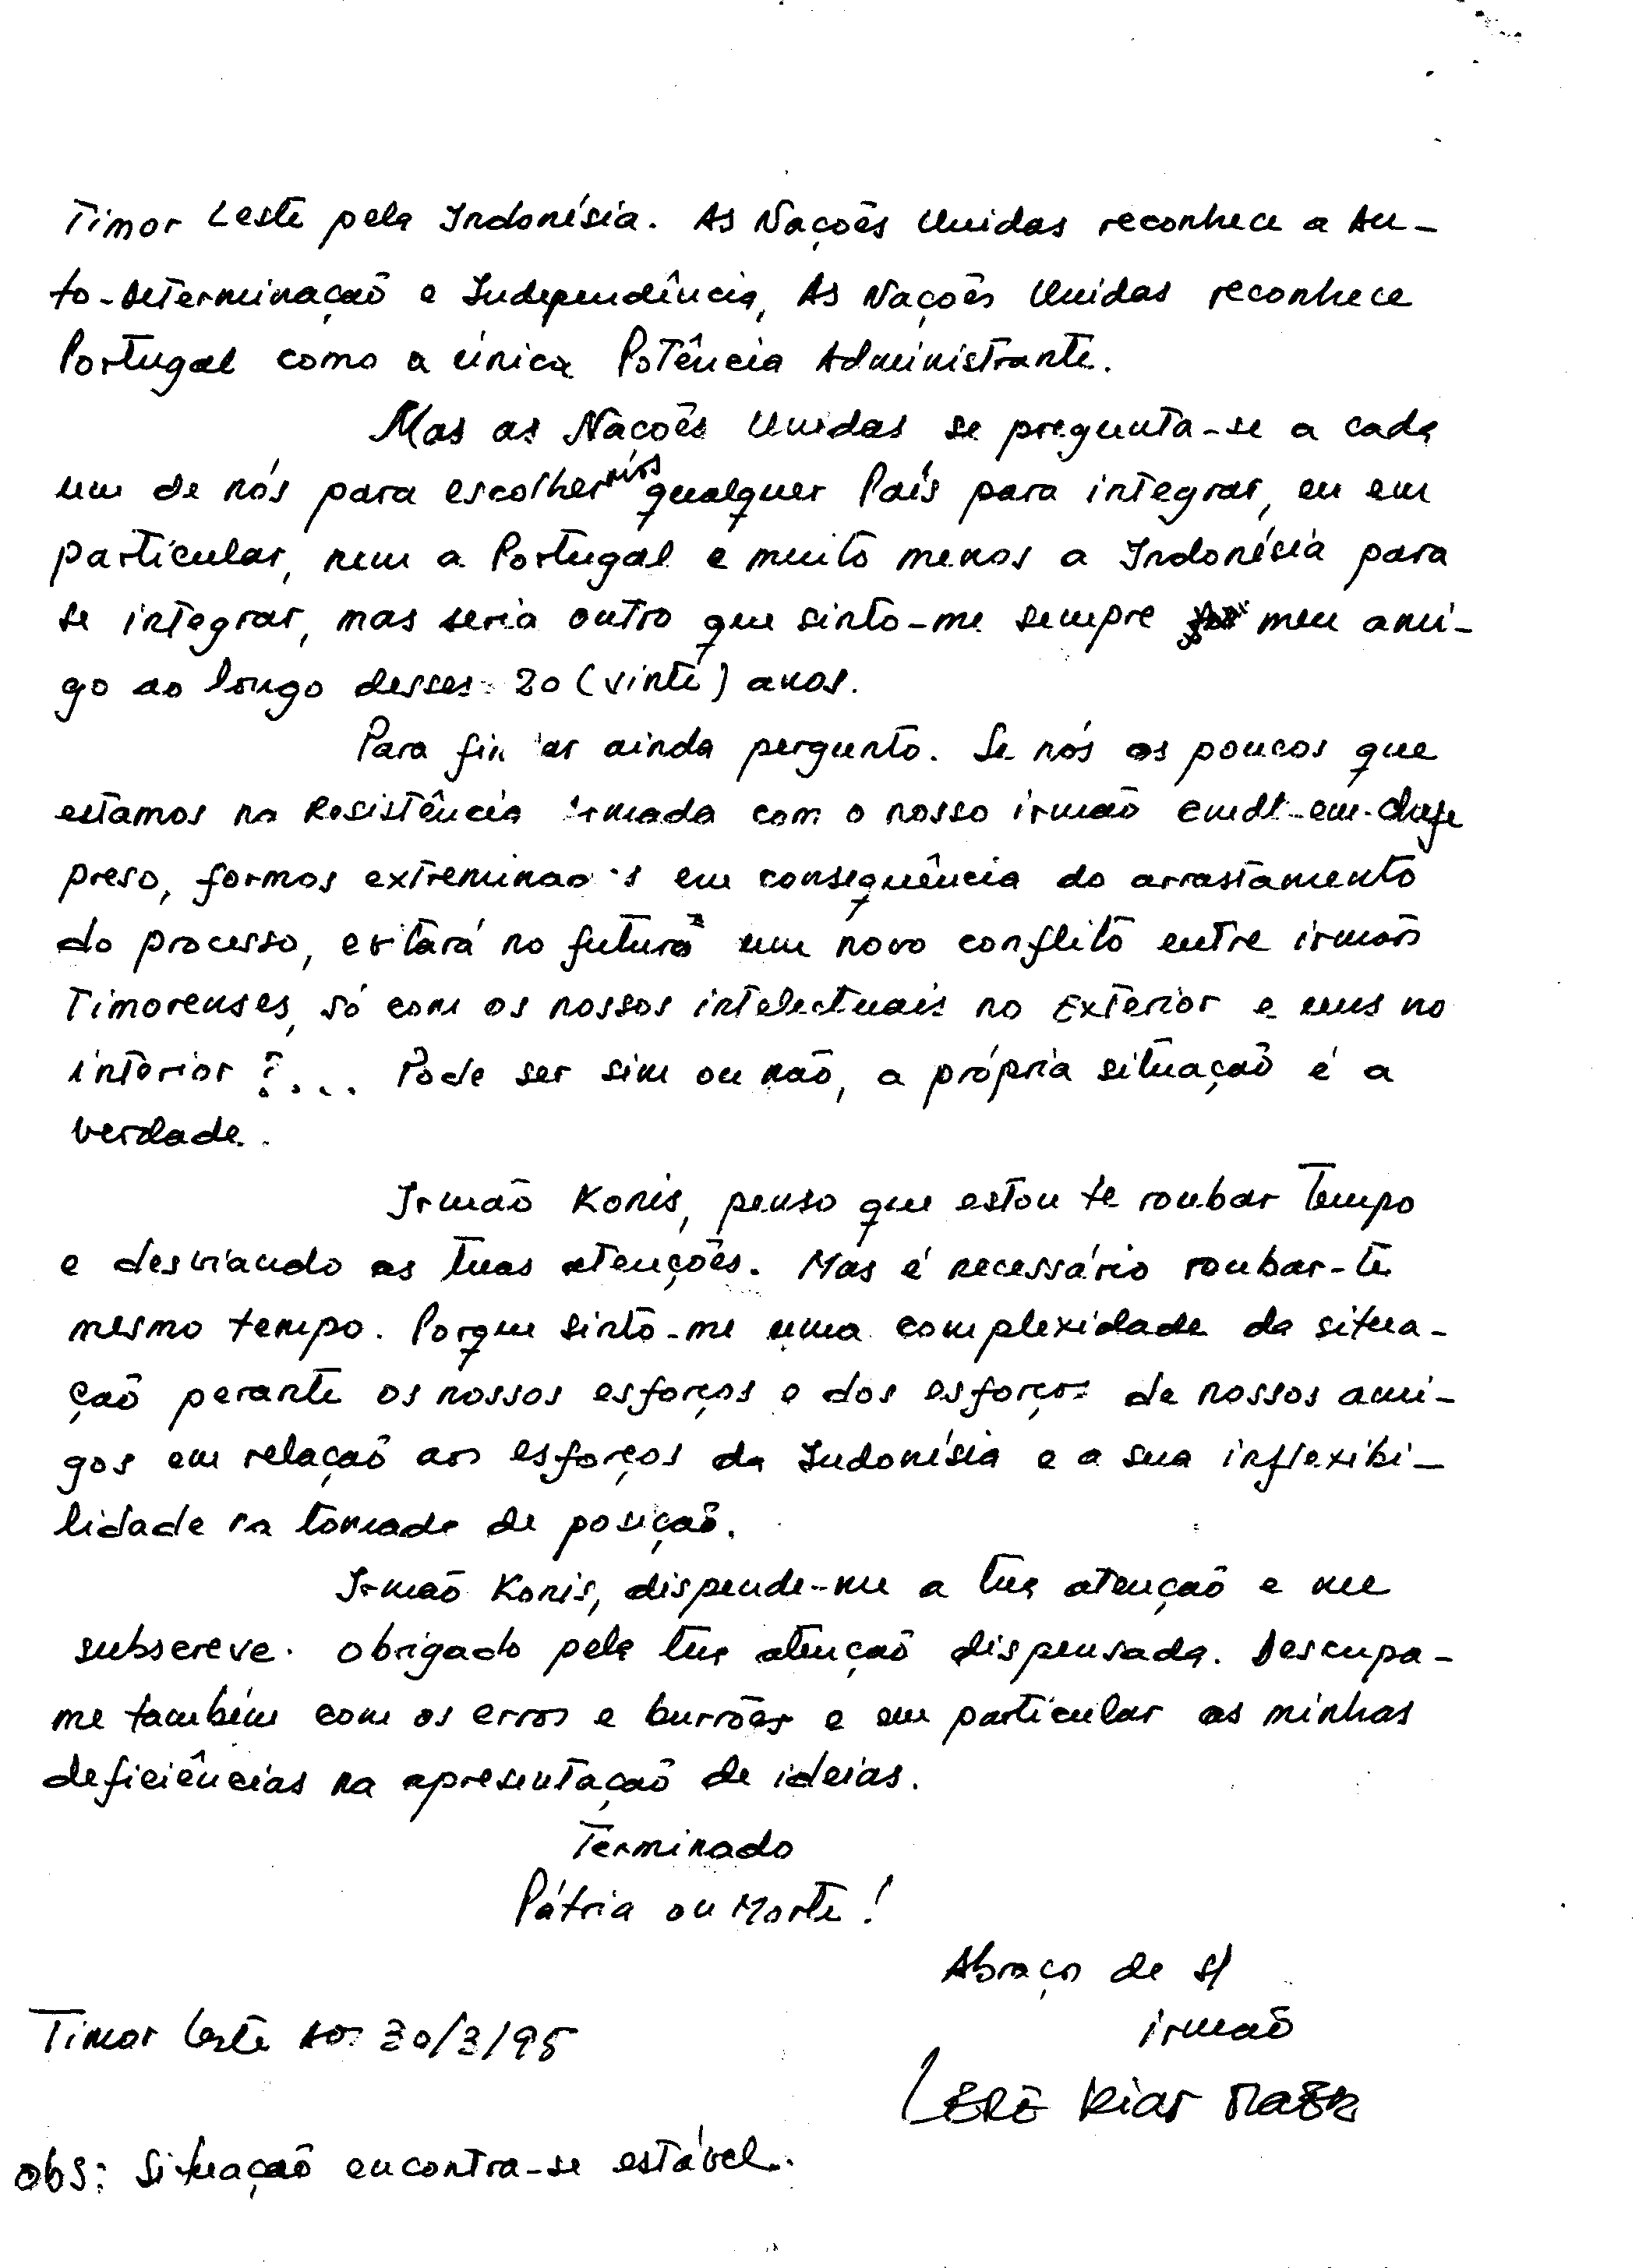 Timor Leste pela Indonésia. As Nações Unidas reconhece a Au-
to-Determinação e Independência, As Nações Unidas reconhece
Portugal como a única Potência Administrante.
Mas as Nacoẽs Unidas se pregunta-se a cada
um de nós para escolhermos qualquer País para integrar, eu em
particular, nem a Portugal e muito menos a Indonésia para
se integrar, mas seria outro que sinto-me sempre meu ami-
go ao longo desses 20 (vinte) anos.
Para fin ar ainda pergunto. Se nós os poucos que
estamos na Resistência Armada com o nosso irmão Cmdt-em-Chefe
preso, formos extreminados em consequência do arrastamento
do processo, evitará no futuro um novo conflito entre irmãos
Timorenses, só com os nossos intelectuais no Exterior e uns no
interior ?... Pode ser sim ou não, a própria situação é a
verdade.
Irmão Konis, penso que estou te roubar tempo
e desviando as tuas atenções. Mas é necessário roubar-te
mesmo tempo. Porque sinto-me uma complexidade da situa-
ção perante os nossos esforços e dos esforços de nossos ami-
gos em relação aos esforços da Indonésia e a sua inflexibi-
lidade na tomada de posição.
Irmão Konis, dispende-me a tua atenção e me
subscreve. Obrigado pela tua atenção dispensada. Descupa-
me também com os erros e burrões e em particular as minhas
deficiências na apresentação de ideias.
Terminado
Pátria ou Morte!
Abraço de s/
irmão
Timor Leste aos 30/3/95
LERE
Obs: Situação encontra-se estável.